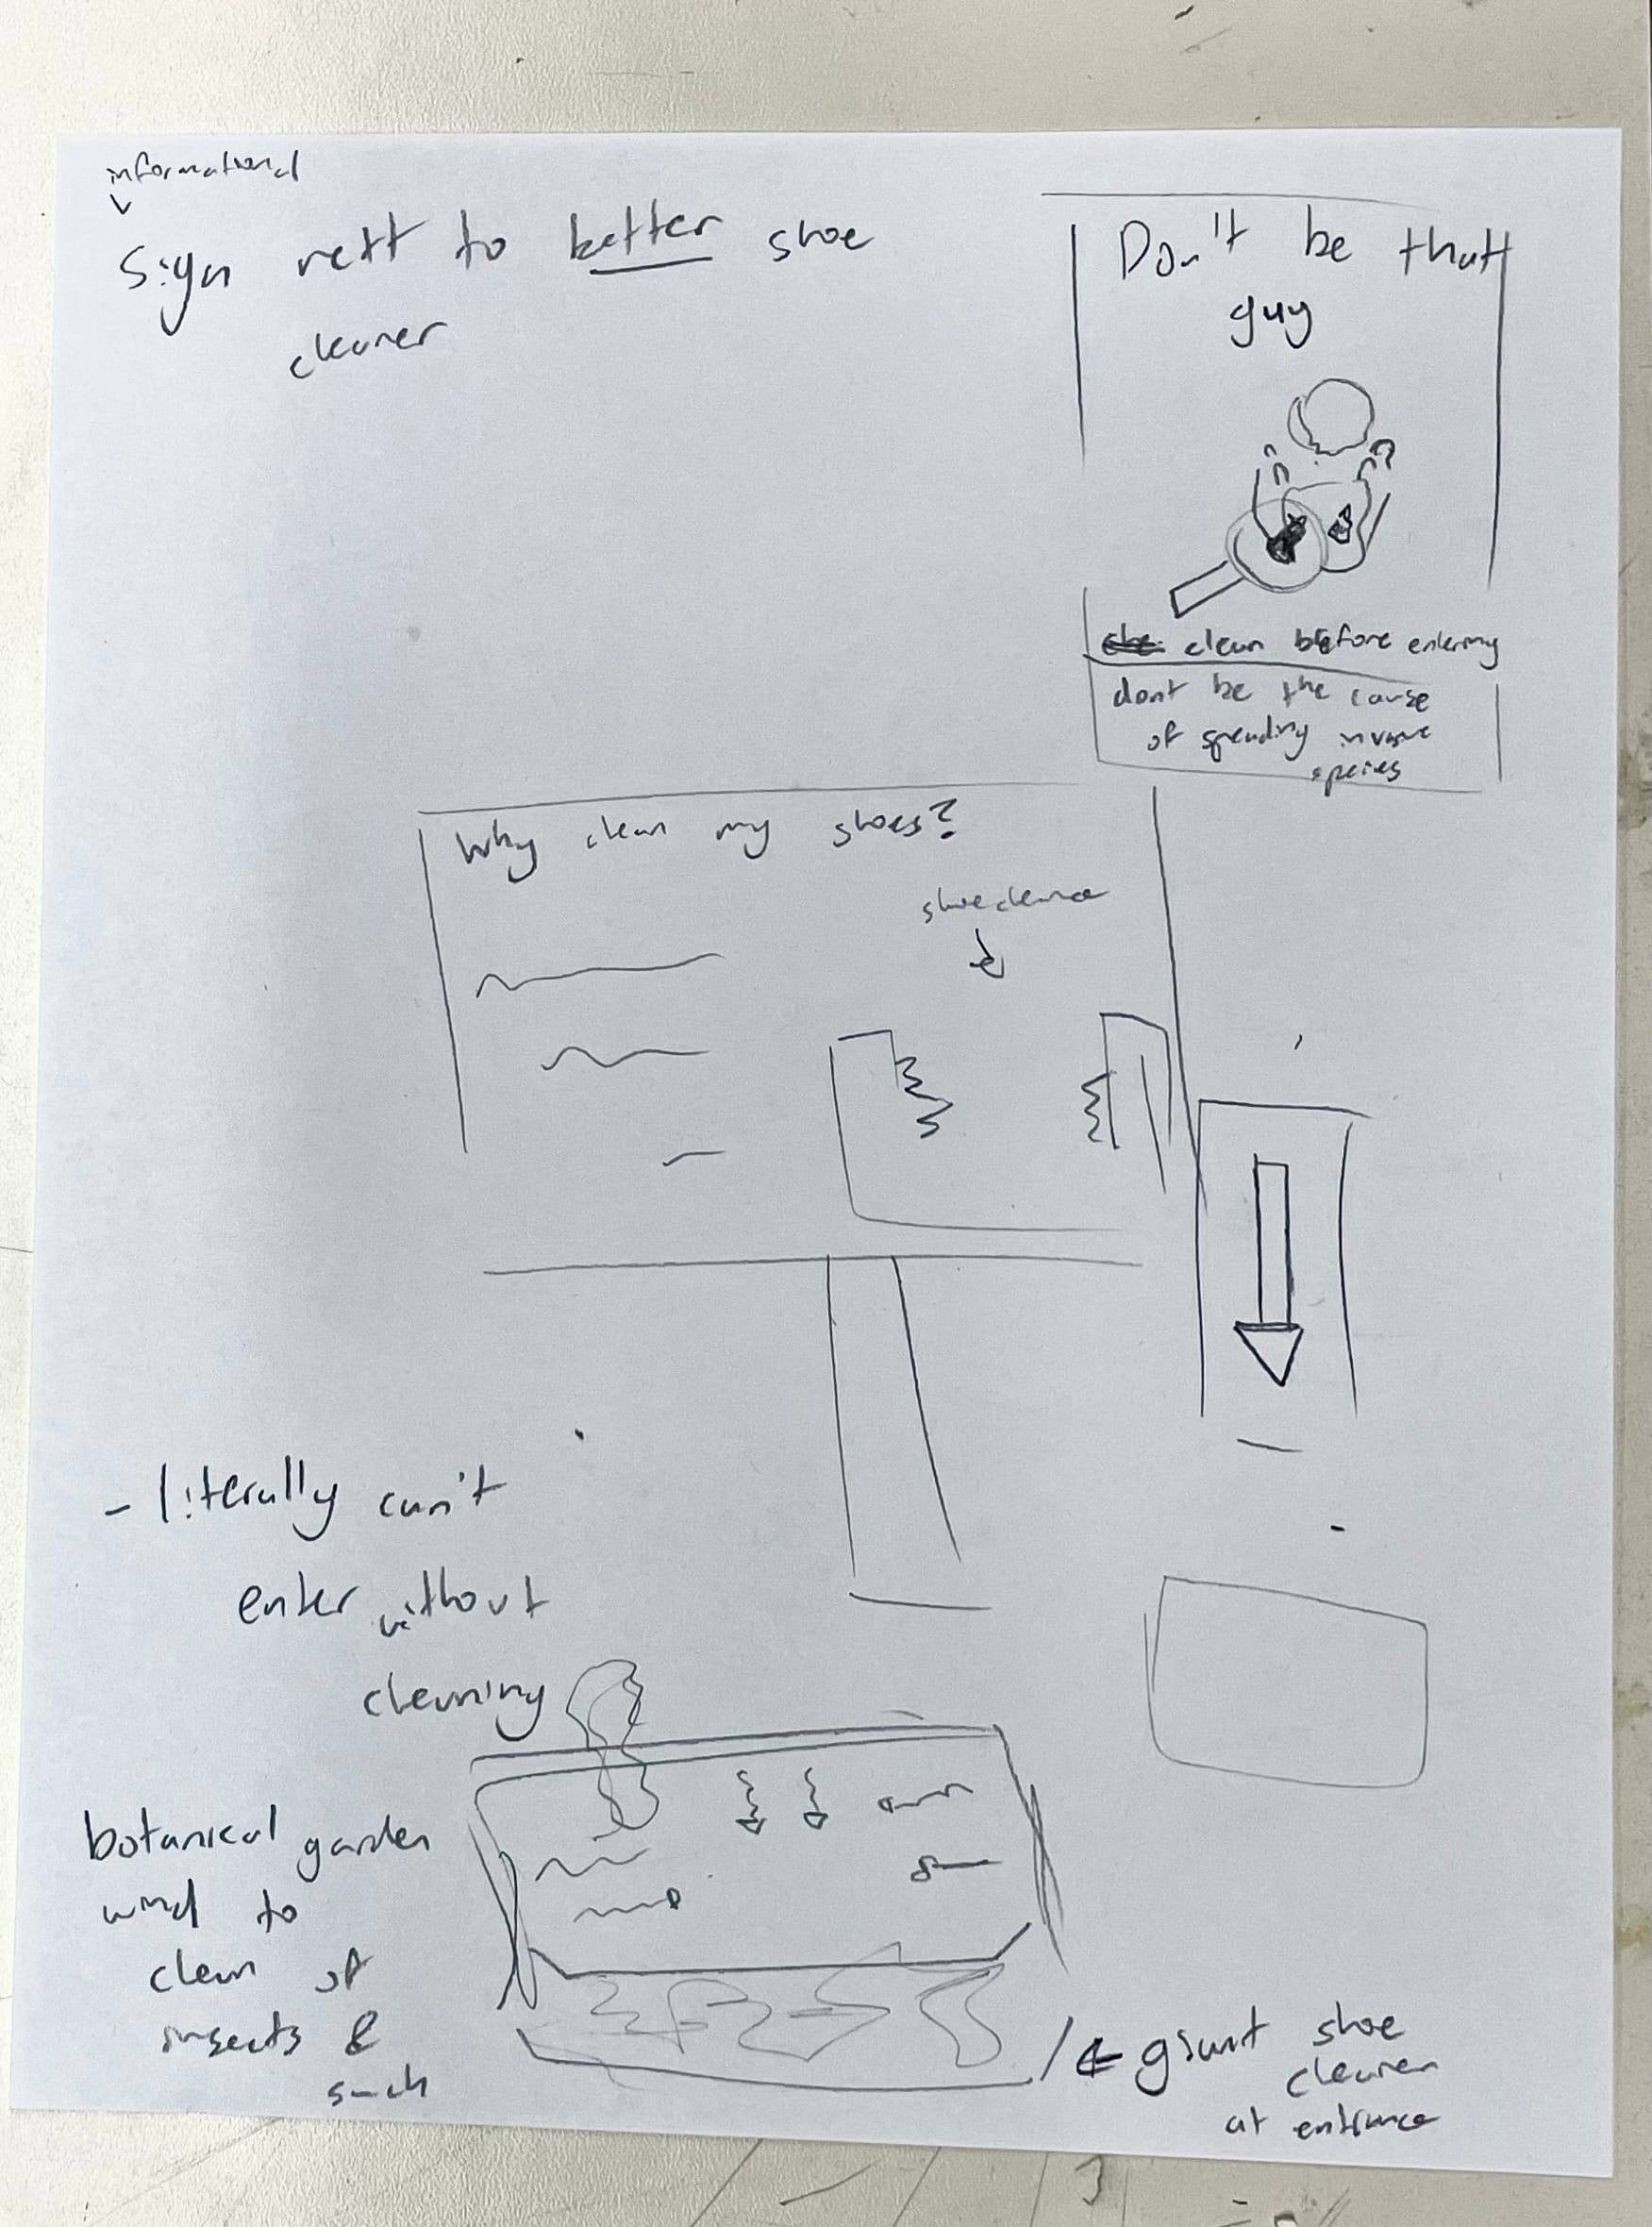 informational
Sign next to better shoe
cleaner
Don't be that
guy
clean before entering
dont be the cause
of spreading invasive
species
Why clean my shoes?
shoe cleaner
- literally can't
enter without
cleaning
botanical garden
wind to
clean of
insects &
such
← giant shoe
cleaner
at entrance